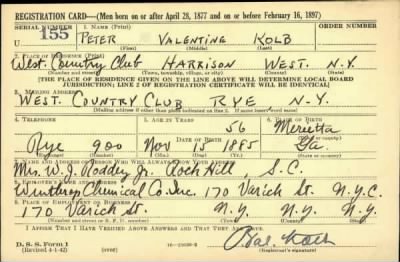 REGISTRATION CARD—(Men born on or after April 28, 1877 and on or before February 16, 1897)
SERIAL NUMBER 1. NAME (Print)
U 155 PETER VALENTINE KOLB
(First) (Middle) (Last)
2. PLACE OF RESIDENCE (Print)
West. Country Club HARRISON WEST. N.Y.
(Number and street) (Town, township, village, or city) (County) (State)
[THE PLACE OF RESIDENCE GIVEN ON THE LINE ABOVE WILL DETERMINE LOCAL BOARD
JURISDICTION; LINE 2 OF REGISTRATION CERTIFICATE WILL BE IDENTICAL]
3. MAILING ADDRESS
WEST. COUNTRY CLUB RYE N.Y.
[Mailing address if other than place indicated on line 2. If same insert word same]
4. TELEPHONE 5. AGE IN YEARS 6. PLACE OF BIRTH
56 Marietta
DATE OF BIRTH
Rye 900 Nov 15 1885 Ga.
(Exchange) (Number) (Mo.) (Day) (Yr.) (State or country)
7. NAME AND ADDRESS OF PERSON WHO WILL ALWAYS KNOW YOUR ADDRESS
Mrs. W. J. Roddey Jr. Rock Hill, S.C.
8. EMPLOYER'S NAME AND ADDRESS
Winthrop Chemical Co. Inc. 170 Varick St. N.Y.C.
9. PLACE OF EMPLOYMENT OR BUSINESS
170 Varick St. N.Y. N.Y. N.Y.
(Number and street or R. F. D. number) (Town) (County) (State)
I AFFIRM THAT I HAVE VERIFIED ABOVE ANSWERS AND THAT THEY ARE TRUE.
D. S. S. Form 1
(Revised 4-1-42) (over)